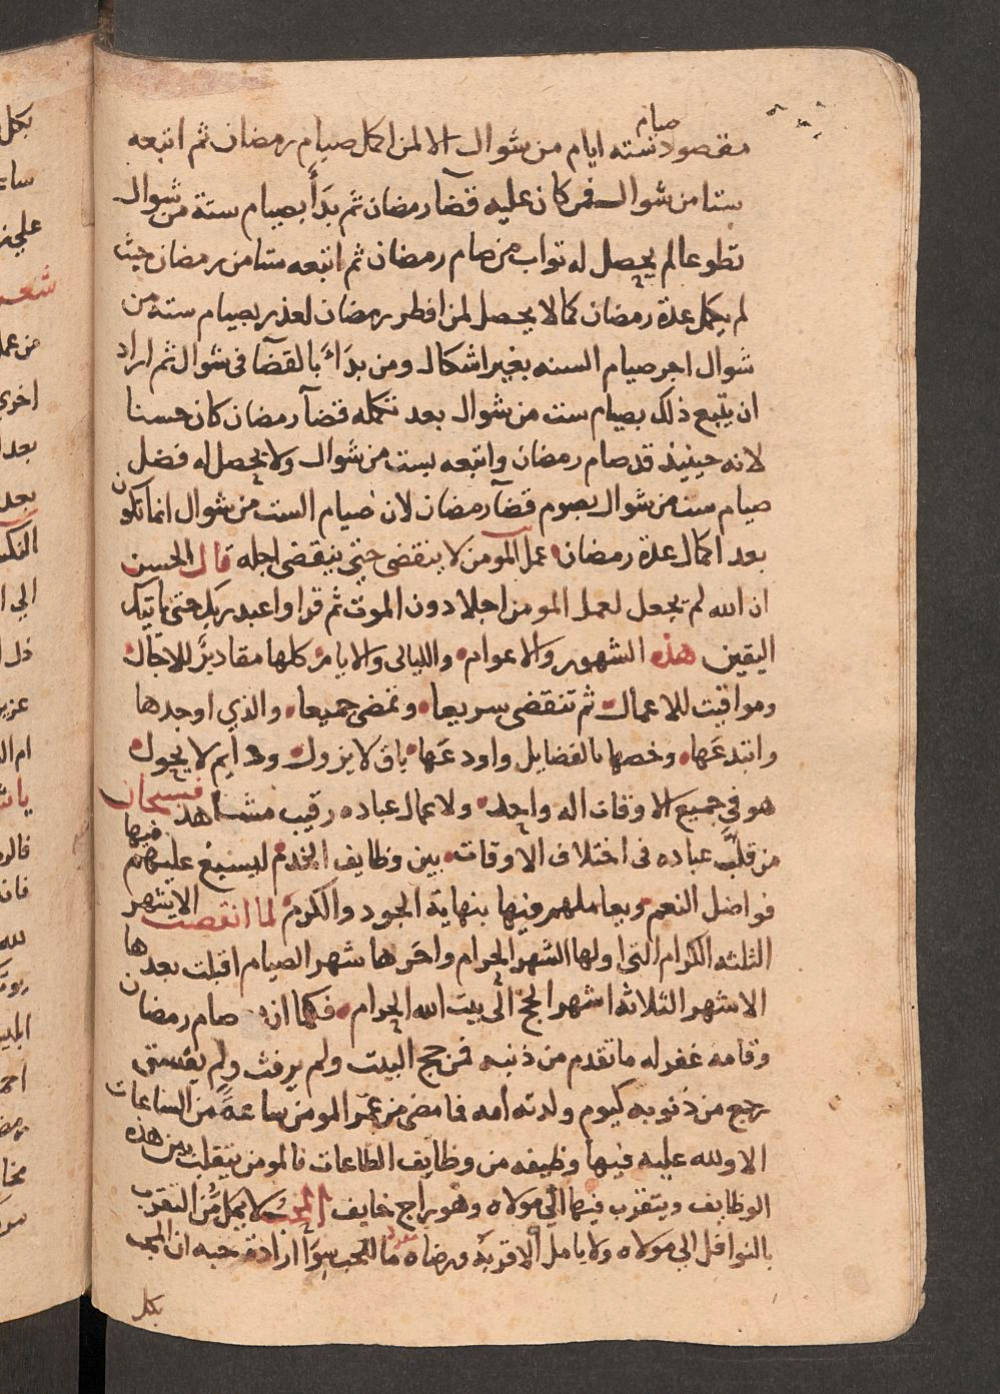 صيام
مقصود ستة ايام من شوال الا لمن اكمل صيام رمضان ثم اتبعه
ستا من شوال فمن كان عليه قضآ رمضان ثم بدَأَ بصيام ستة من شوال
تطوعا لم يحصل له ثواب من صام رمضان ثم اتبعه ستا من رمضان حيث
لم يكمل عدة رمضان كما لا يحصل لمن افطر رمضان لعذر بصيام ستة من
شوال اجر صيام السنه بغير اشكال ومن بدَاءَ بالقضآ فى شوال ثم اراد
ان يتبع ذلك بصيام ست من شوال بعد تكمله قضآ رمضان كان حسنا
لانه حينيذ قد صام رمضان واتبعه بست من شوال ولا يحصل له فضل
صيام ست من شوال بصوم قضآ رمضان لان صيام الست من شوال انما تكون
بعد اكمال عدة رمضان عمل المومن لا ينقضى حتى ينقضى اجله قال الحسن
ان الله لم يجعل لعمل المومن اجلا دون الموت ثم قرا واعبد ربك حتى ياتيك
اليقين هذه الشهور والاعوام والليالى والايام كلها مقاديرَ للاجال
ومواقيت للاعمال ثم تنقضى سريعا وتمضى جميعا والذي اوجدها
وابتدعَها وخصها بالفضايل واودعَها باق لا يزول ودايم لا يحول
هو في جميع الاوقات اله واحد ولاعمال عباده رقيب مشاهد فسبحان
من قلَّب عباده فى اختلاف الاوقات بين وظايف الخدم ليسبغ عليهم فيها
فواضل النعم ويعاملهم فيها بنهاية الجود والكرم لما انقضت الاشهر
الثلثه الكرام التى اولها الشهر الحرام واخرها شهر الصيام اقبلت بعدها
الاشهر الثلاثه اشهر الحج الى بيت الله الحرام فكما ان من صام رمضان
وقامه غفر له ما تقدم من ذنبه فمن حج البيت ولم يرفث ولم يفسق
رجع من ذنوبه كيوم ولدته امه فما مضى من عمر المومن ساعةً من الساعات
الا ولله عليه فيها وظيفه من وظايف الطاعات فالمومن يتقلب بين هذه
الوظايف ويتقرب فيها الى مولاه وهو راج خايف المحب لا يمل من التقرب
بالنوافل الى مولاه ولا يامل الا قربه ورضاه ما للمحب سوا ارادة حبه ان المحب
بكل